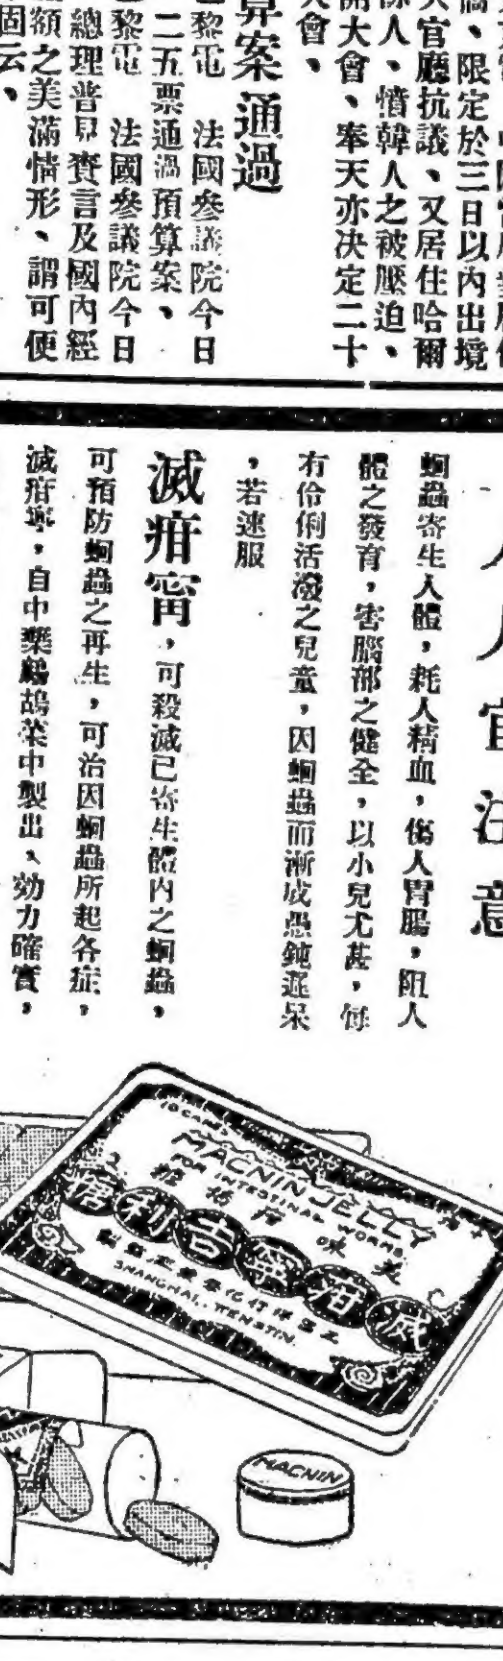 僑、限定於三日以內出境
官廳抗議、又居住哈爾
人、憤韓人之被壓迫、
開大會、奉天亦決定二十
大會、
算案通過
黎電　法國參議院今日
二五票通過預算案、
黎電　法國參議院今日
總理普恩賚言及國內經
額之美滿情形、謂可便
固云、
人人宜注意
蛔蟲寄生人體，耗人精血，傷人胃腸，阻人
體之發育，害腦部之健全，以小兒尤甚，每
有伶俐活潑之兒童，因蛔蟲而漸成愚鈍遲呆
，若速服
滅疳甯，可殺滅已寄生體內之蛔蟲，
可預防蛔蟲之再生，可治因蛔蟲所起各症，
滅疳寧，自中藥鷓鴣菜中製出、効力確實，
MACNIN JELLY
FOR INTESTINAL WORMS
美味
滅疳寧吉利糖
SHANGHAI, TIENTSIN.
MACNIN